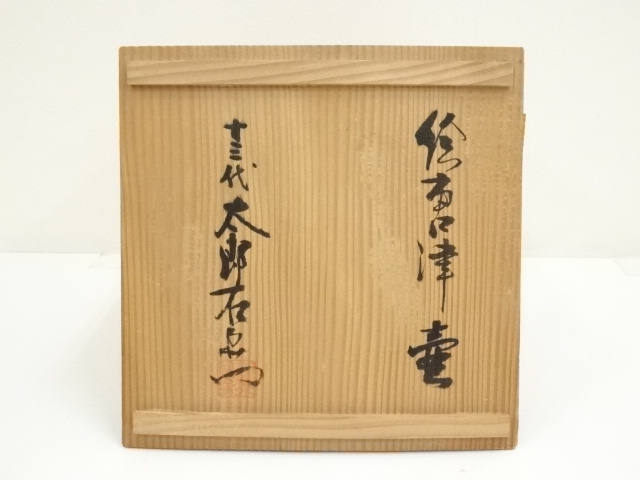 絵唐津 壷
十三代 太郎右衛門